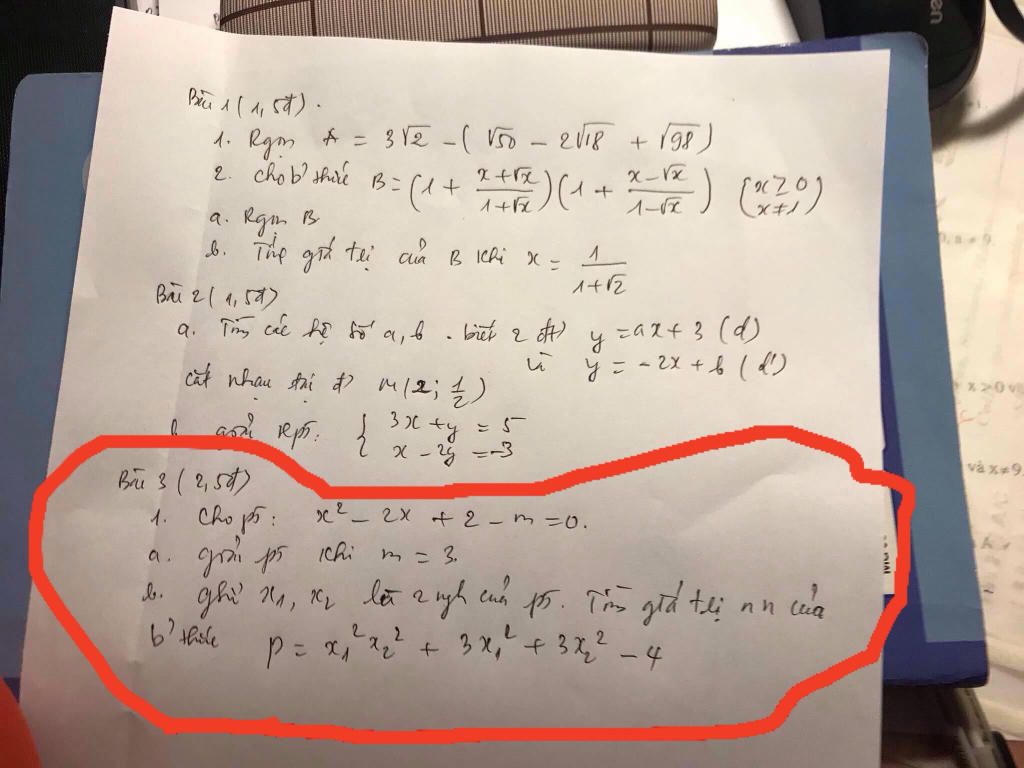 Bài 1 (1,5đ).
1. Rgọn A = 3√2 - (√50 - 2√18 + √98)
2. Cho b² thức B = (1 + (x+√x)/(1+√x))(1 + (x-√x)/(1-√x)) (x ≥ 0 x ≠ 1)
a. Rgọn B
b. Tính giá trị của B khi x = 1/(1+√2)
Bài 2 (1,5đ)
a. Tìm các hệ số a, b. biết 2 đt y = ax + 3 (d)
và y = -2x + b (d')
cắt nhau tại đ M(2; 1/2)
giải hpt: { 3x + y = 5
x - 2y = -3
Bài 3 (2,5đ)
1. Cho pt: x² - 2x + 2 - m = 0.
a. giải pt khi m = 3
b. ghi x₁, x₂ là 2 ngh của pt. Tìm giá trị nn của
b² thức P = x₁²x₂² + 3x₁² + 3x₂² - 4
en
và x≠9